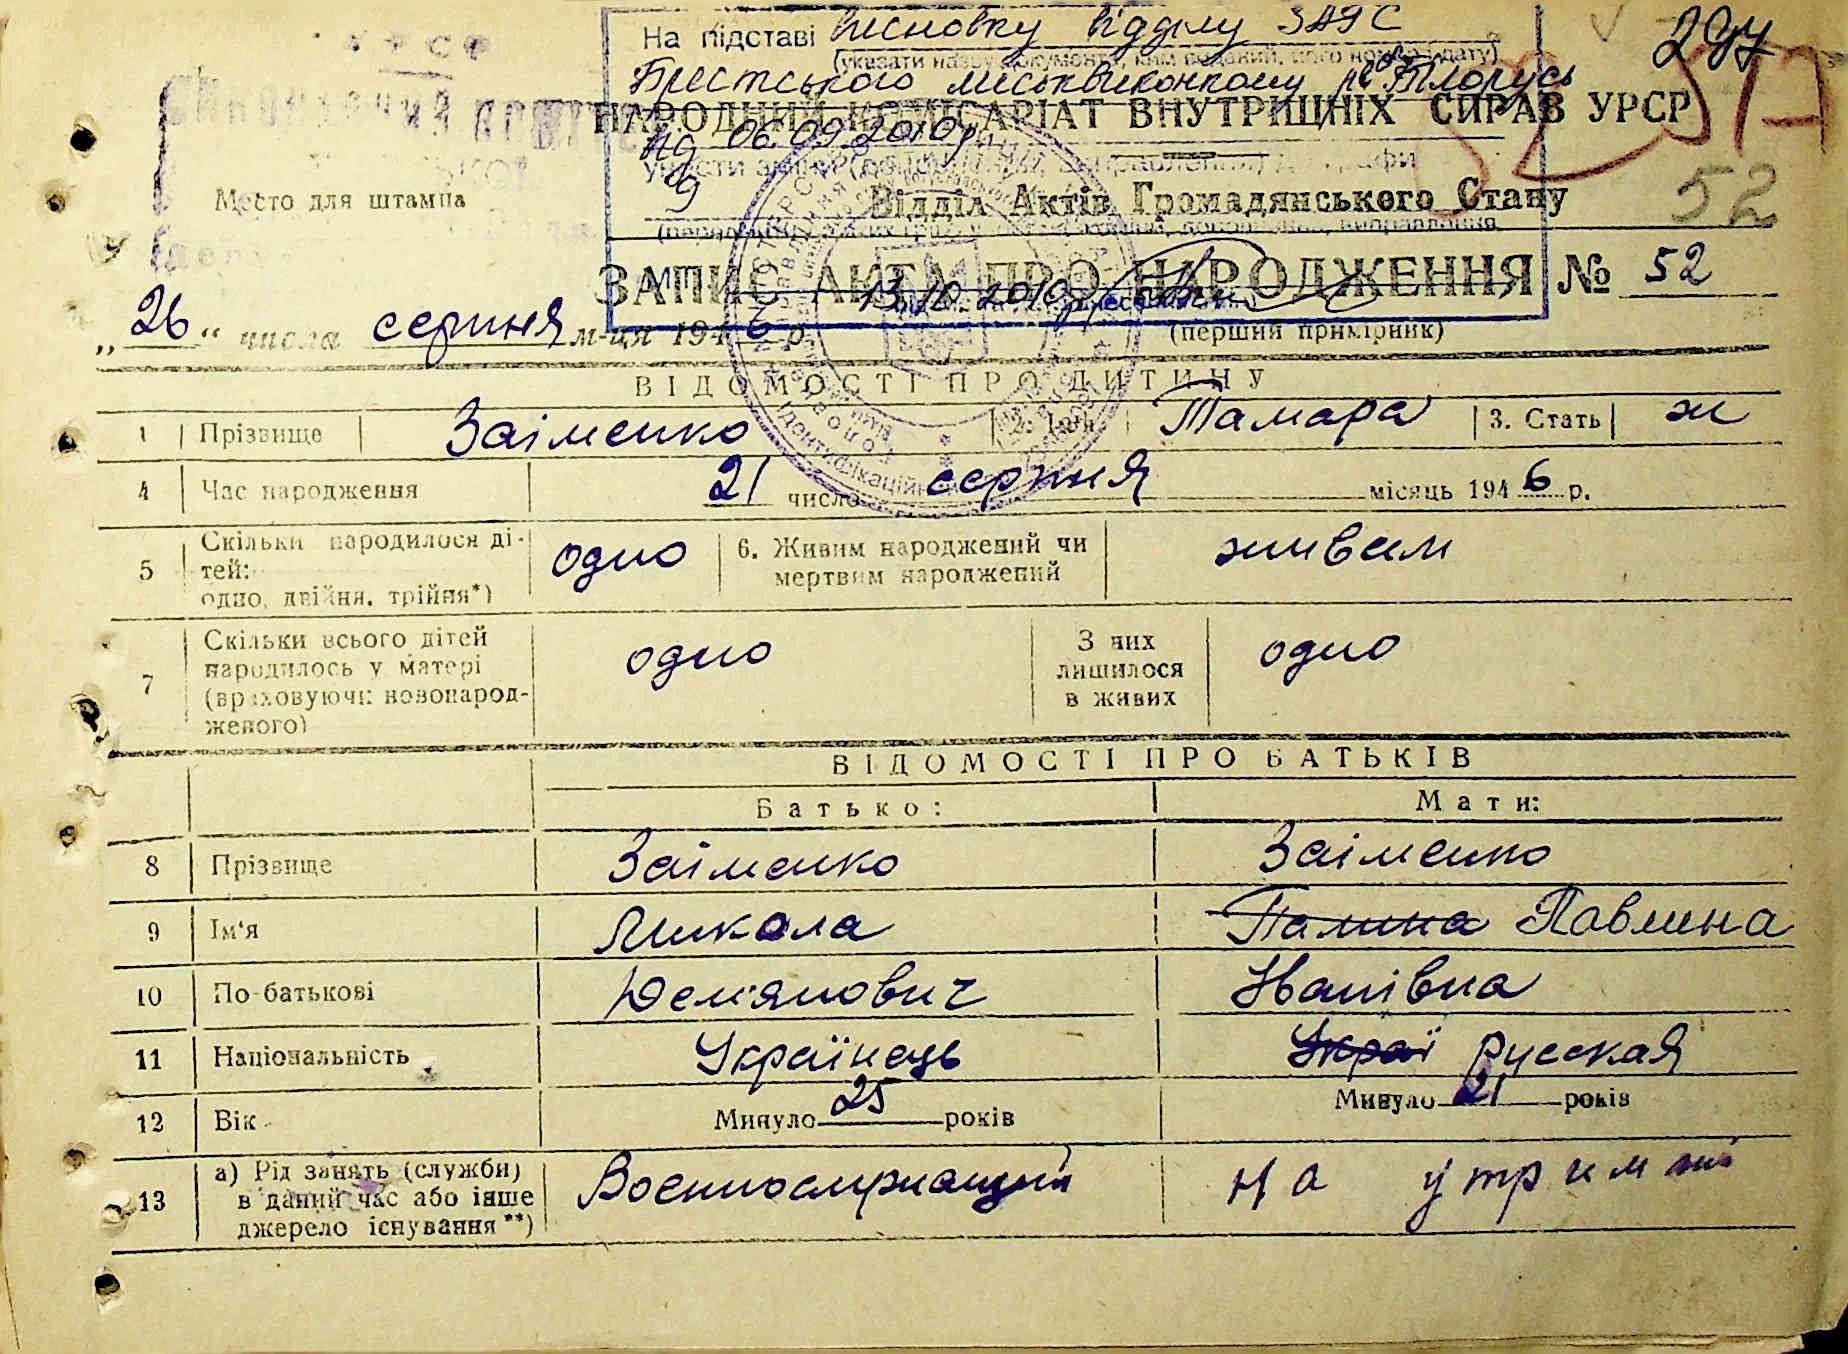 На підставі висновку відділу ЗАГС
(указати назву документа, ким виданий, його номер і дату)
Брестського міськвиконкому Білорусь
від 06.09.2010р
НАРОДНИЙ КОМІСАРІАТ ВНУТРИШНІХ СПРАВ УРСР
52
Место для штампа
9
Відділ Актів Громадянського Стану
ЗАПИС АКТА ПРО НАРОДЖЕННЯ № 52
13.10.2010р
„26“ числа серпня м-ця 1946 р.
(перший примірник)
ВІДОМОСТІ ПРО ДИТИНУ
1 Прізвище Заіменко 2. Ім'я Тамара 3. Стать ж
4 Час народження 21 число серпня місяць 1946 р.
5 Скільки народилося ді-
тей:
одно, двійня, трійня*) одно 6. Живим народжений чи
мертвим народжений живим
7 Скільки всього дітей
народилось у матері
(враховуючи новонарод-
женого) одно З них
лишилося
в живих одно
ВІДОМОСТІ ПРО БАТЬКІВ
Батько: Мати:
8 Прізвище Заіменко Заіменко
9 Ім'я Микола Палина Павлина
10 По-батькові Дем'янович Іванівна
11 Національність Українець Украї русская
12 Вік Минуло 25 років Минуло 21 років
13 а) Рід занять (служби)
в даний час або інше
джерело існування **) Воєннослужащий на утримані